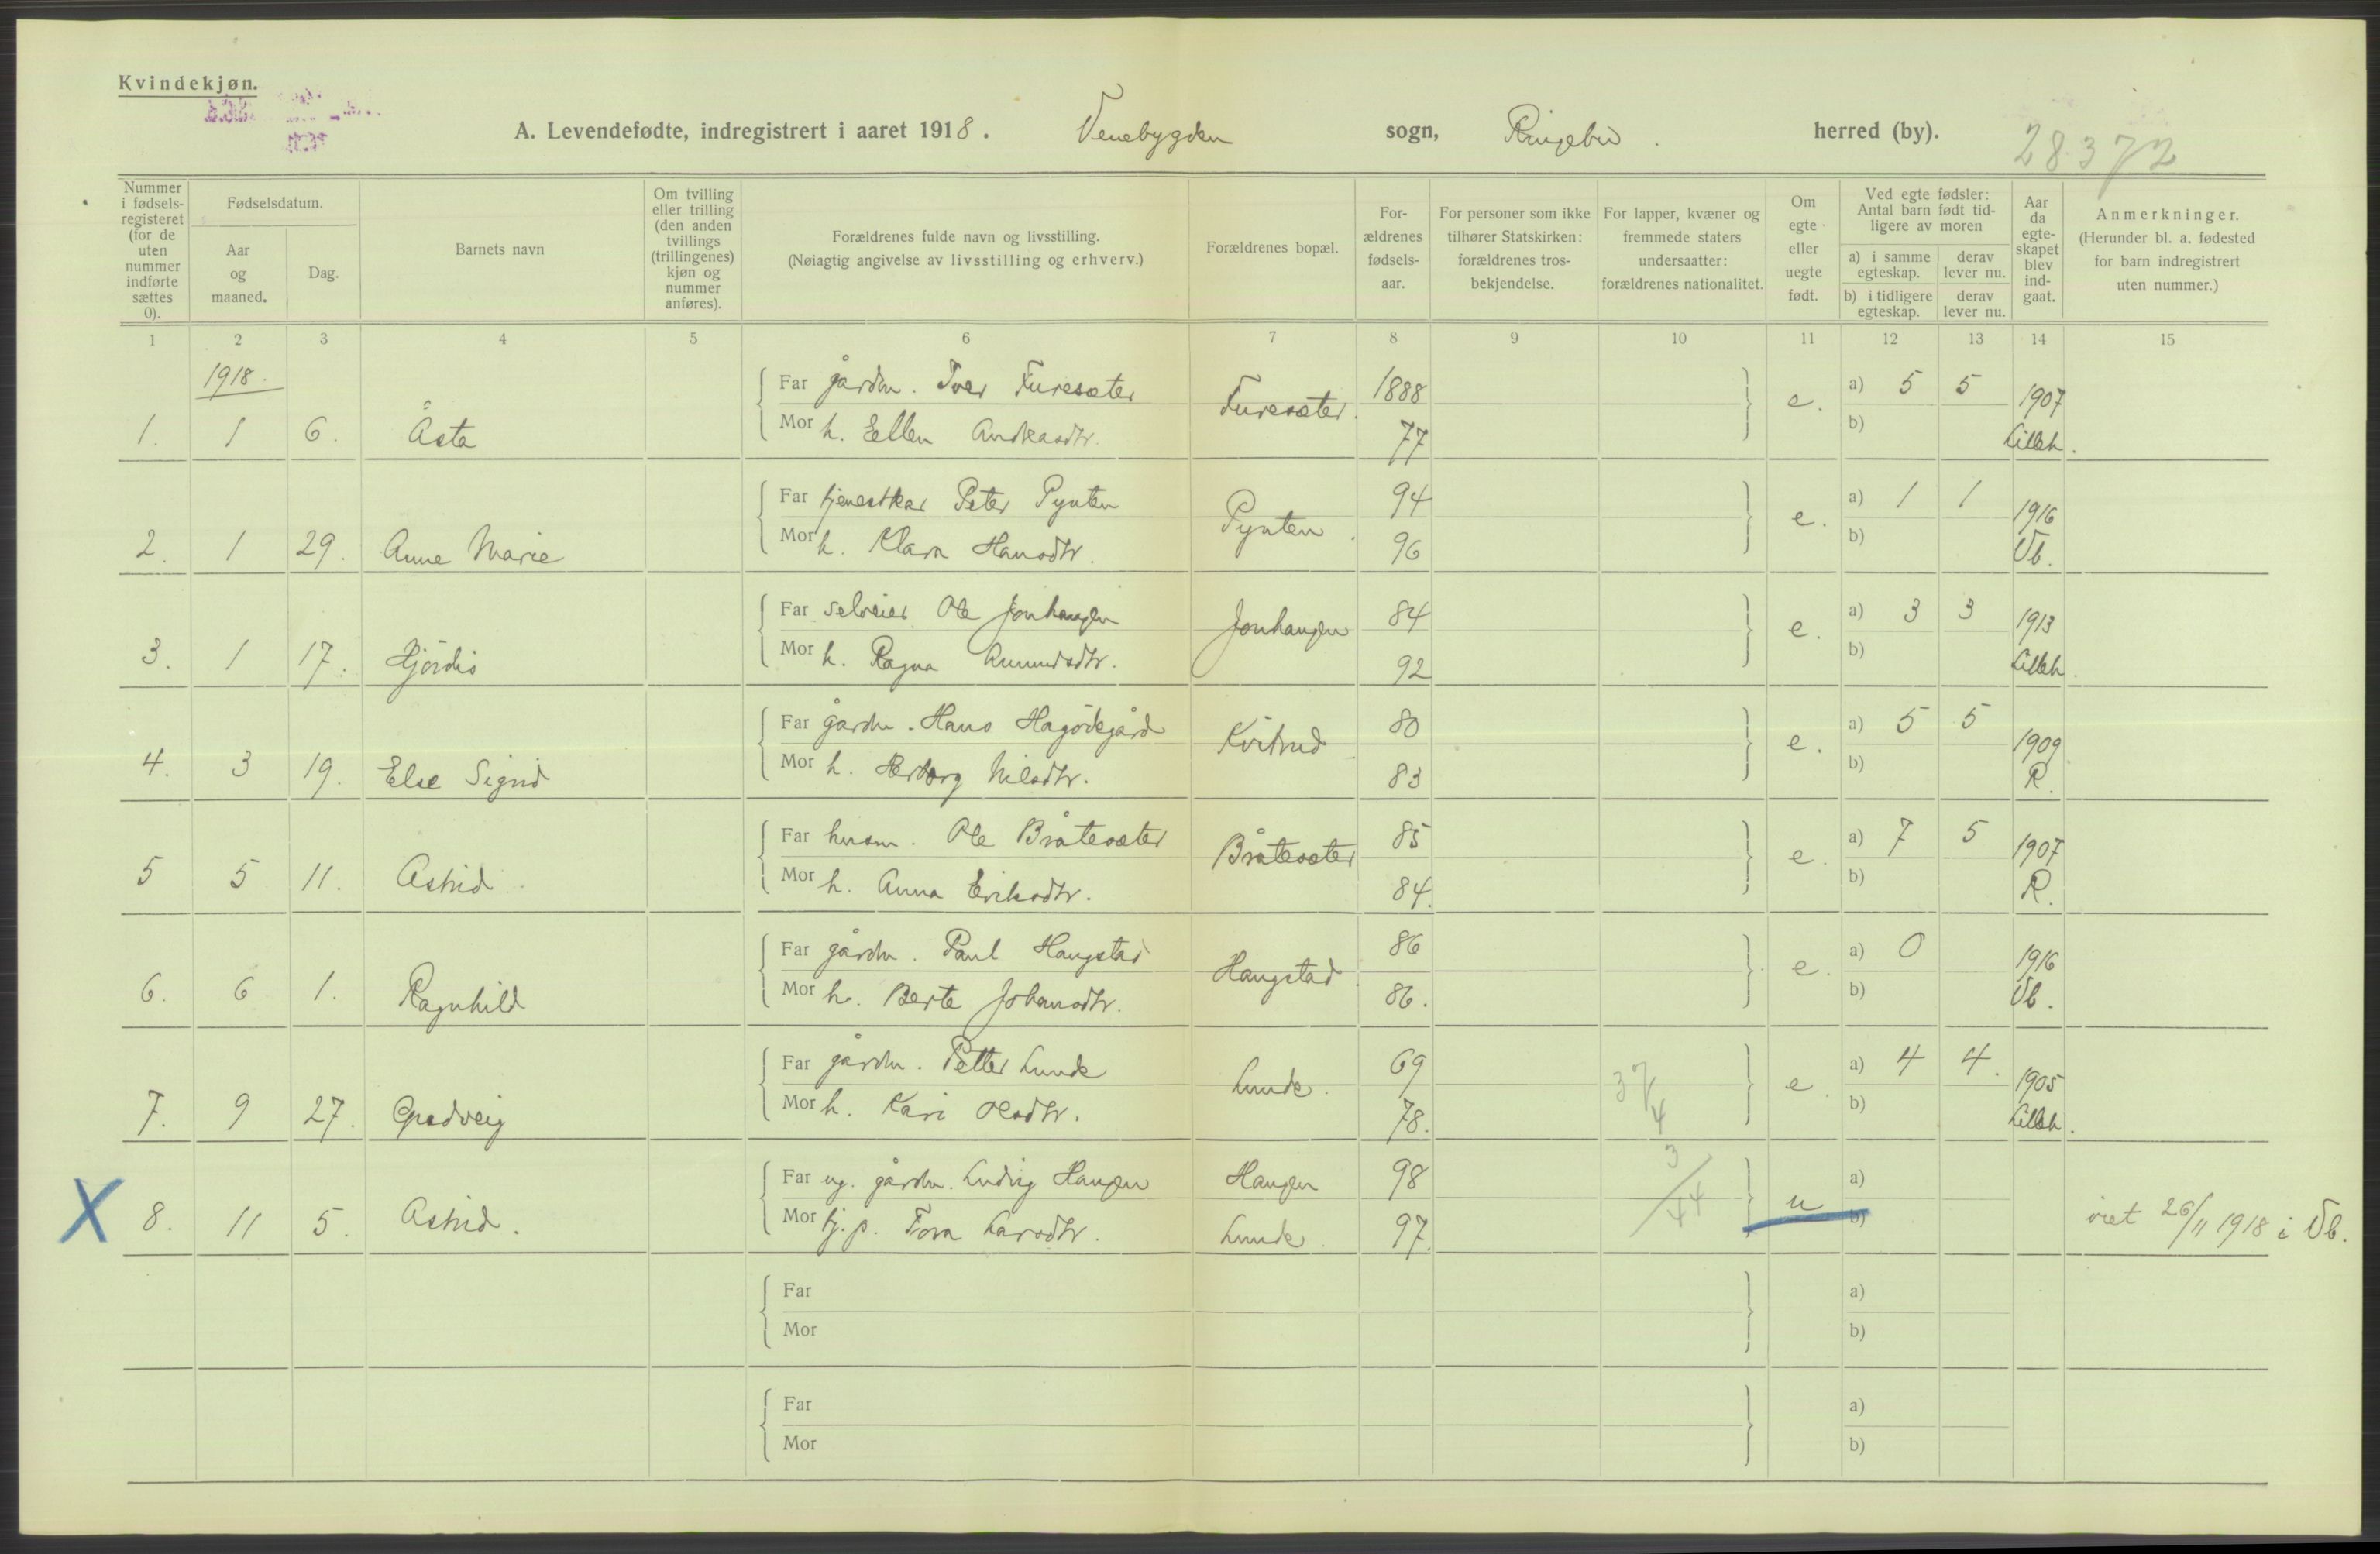 Kvindekjøn.
A. Levendefødte, indregistrert i aaret 1918. Venebygden sogn, Ringebu. herred (by). 28372
Nummer i fødsels-registeret (for de uten nummer indførte sættes 0).
Fødselsdatum.
Aar og maaned.
Dag.
Barnets navn
Om tvilling eller trilling (den anden tvillings (trillingenes) kjøn og nummer anføres).
Forældrenes fulde navn og livsstilling.
(Nøiagtig angivelse av livsstilling og erhverv.)
Forældrenes bopæl.
For-ældrenes fødsels-aar.
For personer som ikke tilhører Statskirken: forældrenes tros-bekjendelse.
For lapper, kvæner og fremmede staters undersaatter: forældrenes nationalitet.
Om egte eller uegte født.
Ved egte fødsler: Antal barn født tid-ligere av moren
a) i samme egteskap.
derav lever nu.
b) i tidligere egteskap.
derav lever nu.
Aar da egte-skapet blev ind-gaat.
Anmerkninger.
(Herunder bl. a. fødested for barn indregistrert uten nummer.)
1 2 3 4 5 6 7 8 9 10 11 12 13 14 15
1918.
Far gårdm. Iver Furesæter 1888 a) 5 5 1907
1. 1 6. Åsta Mor h. Ellen Furesæter. 77 e. b) Lilleh.
Far tjenestkar Peter Pynten 94 a) 1 1 1916
2. 1 29. Anne Marie Mor h. Klara Hansdtr. Pynten. 96 e. b) Vb.
Far selveier Ole Jonhaugen 84 a) 3 3 1913
3. 1 17. Hjördis Mor h. Ragna Amundsdtr. Jonhaugen 92 e. b) Lilleh.
Far gårdm. Hans 80 a) 5 5 1909
4. 3 19. Else Sigrid Mor h. Herborg Nilsdtr. Kvitrud 83 e. b) R.
Far husm. Ole Bråtesæter 85 a) 7 5 1907
5 5 11. Astrid Mor h. Anna Eriksdtr. Bråtesæter 84. e. b) R.
Far gårdm. Paul Haugstad 86 a) 0 1916
6. 6 1. Ragnhild Mor h. Berte Johansdtr. Haugstad. 86. e. b) Vb.
Far gårdm. Petter Lunde 69 a) 4 4. 1905
7. 9 27. Mor h. Kari Olsdtr. Lunde. 78. 37/4 e. b) Lilleh.
Far ug. gårdm. Ludvig Haugen Haugen 98 3/44 a)
X 8. 11 5. Astrid. Mor tj. p. Tora Larsdtr. Lunde. 97. u b) viet 26/11 1918 i Vb.
Far a)
Mor b)
Far a)
Mor b)